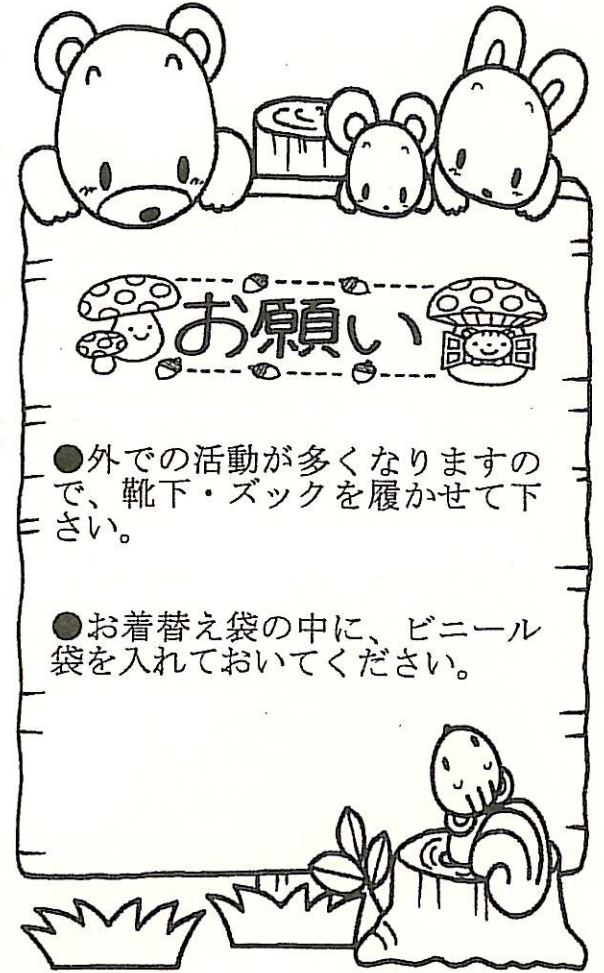 お願い
●外での活動が多くなりますの
で、靴下・ズックを履かせて下
さい。
●お着替え袋の中に、ビニール
袋を入れておいてください。